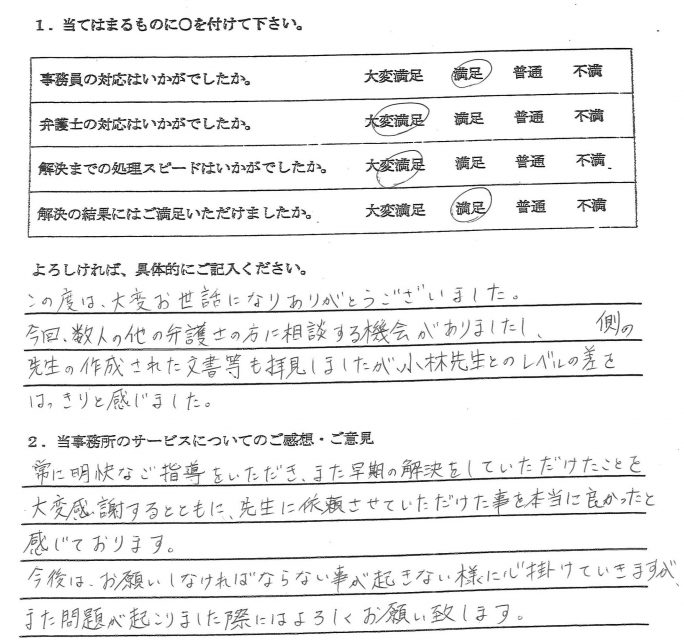 1．当てはまるものに〇を付けて下さい。
事務員の対応はいかがでしたか。 大変満足 満足 普通 不満
弁護士の対応はいかがでしたか。 大変満足 満足 普通 不満
解決までの処理スピードはいかがでしたか。 大変満足 満足 普通 不満
解決の結果にはご満足いただけましたか。 大変満足 満足 普通 不満
よろしければ、具体的にご記入ください。
この度は、大変お世話になりありがとうございました。
今回、数人の他の弁護士の方に相談する機会がありましたし、 側の
先生の作成された文書等も拝見しましたが、小林先生とのレベルの差を
はっきりと感じました。
2．当事務所のサービスについてのご感想・ご意見
常に明快なご指導をいただき、また早期の解決をしていただけたことを
大変感謝するとともに、先生に依頼させていただけた事を本当に良かったと
感じております。
今後は、お願いしなければならない事が起きない様に心掛けていきますが、
また問題が起こりました際にはよろしくお願い致します。